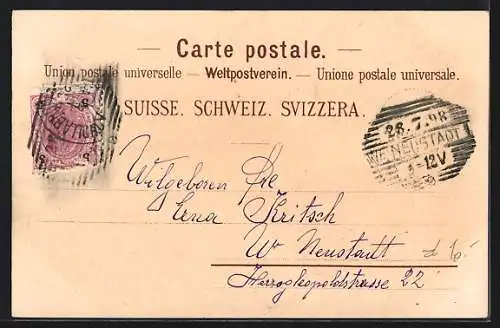 Carte postale.
Union postale universelle – Weltpostverein. – Unione postale universale.
SUISSE. SCHWEIZ. SVIZZERA.
28.7.98
WR. NEUSTADT 1
-12V
Wilgeboren Sie
Erna Kritsch
Wr Neustadt
Herzogleopoldstrasse 22